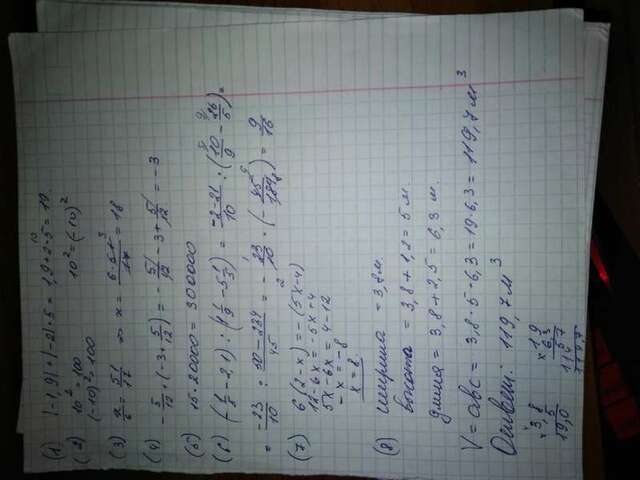 (1) |-1,9|·|-2|·5 = 1,9·2·5 = 19
(2) 10² = 100
(-10)² = 100 10² = (-10)²
(3) x/6 = 51/17 ⇔ x = 6·51/17 = 18
(4) -5/12 + (-3 + 5/12) = -5/12 - 3 + 5/12 = -3
(5) 15·20000 = 300000
= -23/10 : = -23/10 · = 9/16
(7) 6(2-x) = -(5x-4)
12-6x = -5x+4
5x-6x = 4-12
-x = -8
x = 8.
(8) ширина = 3,8 м.
высота = 3,8 + 1,2 = 5 м.
длина = 3,8 + 2,5 = 6,3 м.
V = abc = 3,8·5·6,3 = 19·6,3 = 119,7 м³
Ответ: 119,7 м³
3,8
5
19,0
× 19
6,3
57
114
119,7